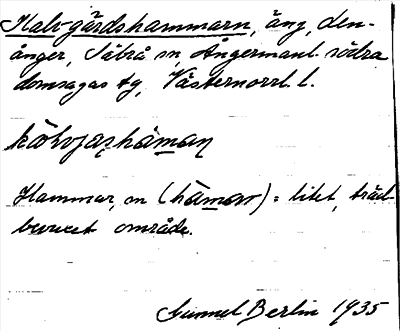 Kalvgårdshammarn, äng, Den-
ånger, Säbrå sn, Ångermanl. södra
domsagas tg, Västernorrl. l.
kălvjashăman
Hammar, m (hămar) = litet, träd-
bevuxet område.
Gunnel Berlin 1935